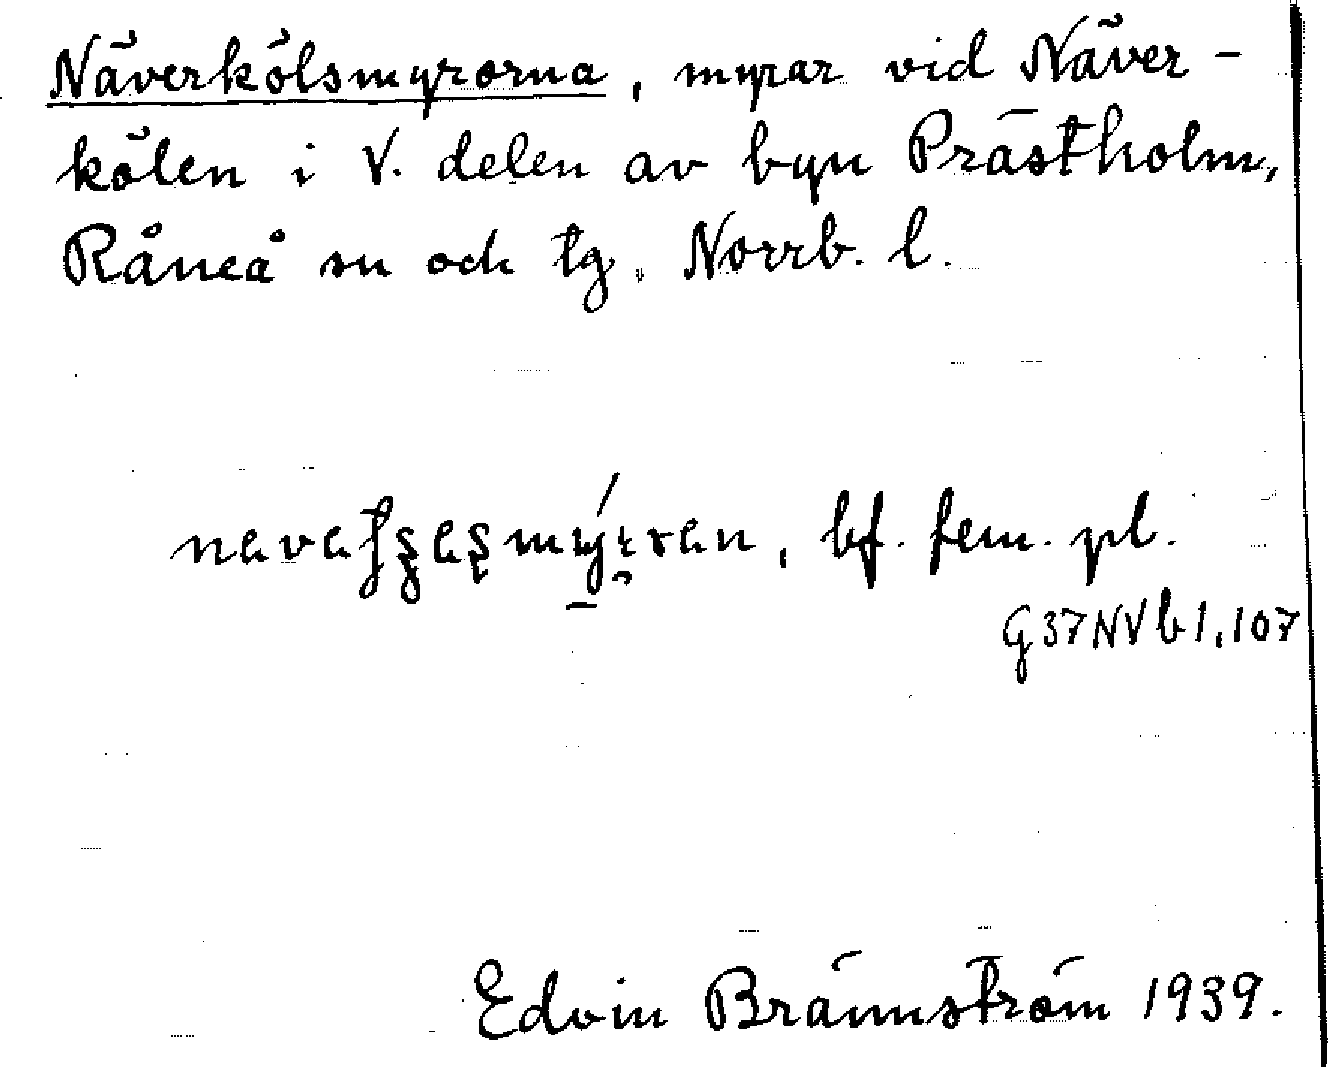 Näverkölsmyrorna, myrar vid Näver-
kölen i V. delen av byn Prästholm,
Råneå sn och tg. Norrb. l.
bf. fem. pl.
G37NVb1,107
Edvin Brännström 1939.